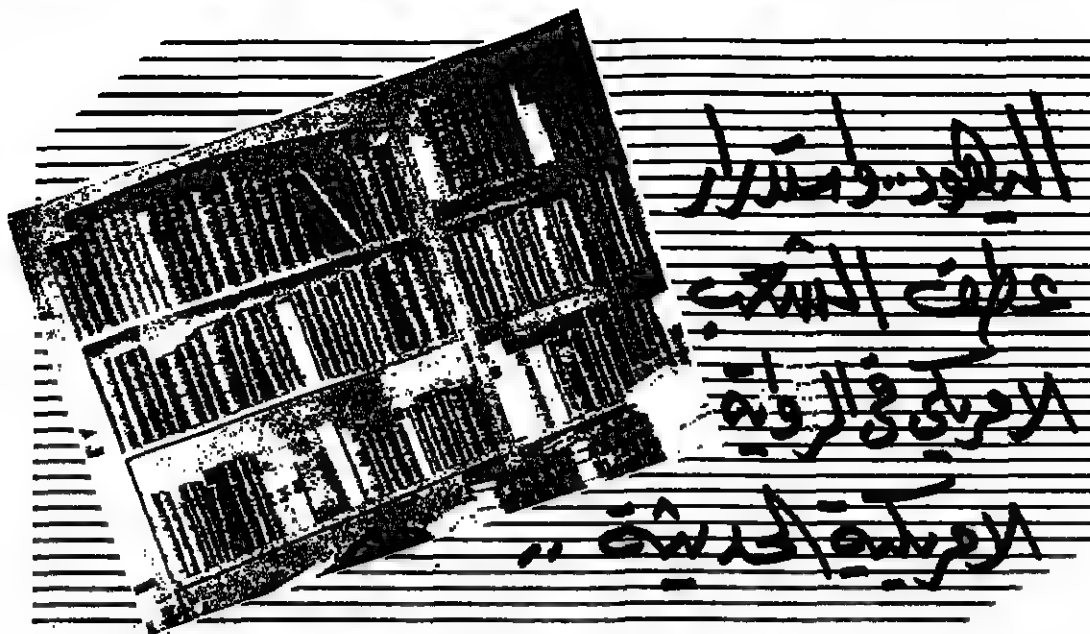 اليهود.. واستدرار
عطف الشعب
الامريكى فى الرواية
الامريكية الحديثة ..